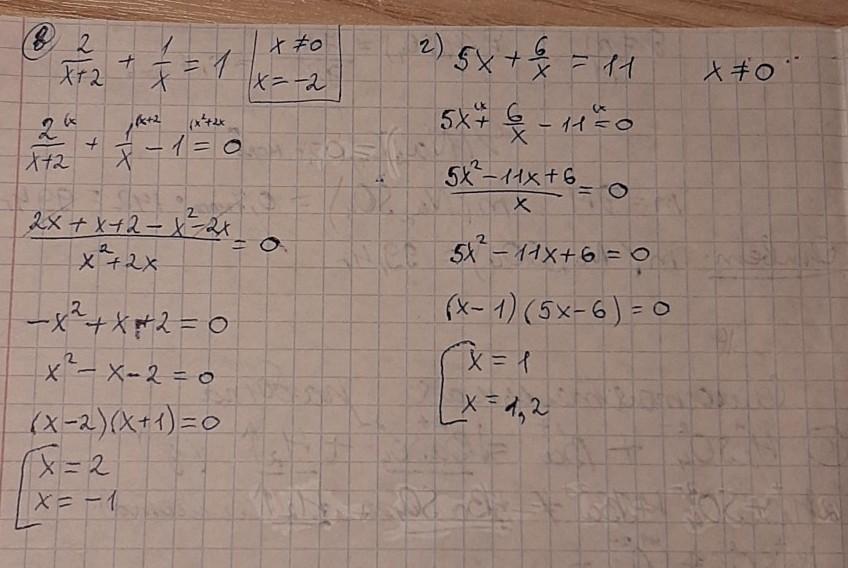 в) 2/(x+2) + 1/x = 1 | x ≠ 0
x = -2
2/(x+2) + 1/x - 1 = 0
(2x + x + 2 - x² - 2x)/(x² + 2x) = 0
-x² + x + 2 = 0
x² - x - 2 = 0
(x-2)(x+1) = 0
[x = 2
x = -1
г) 5x + 6/x = 11 x ≠ 0
5x + 6/x - 11 = 0
(5x² - 11x + 6)/x = 0
5x² - 11x + 6 = 0
(x-1)(5x-6) = 0
[x = 1
x = 1,2